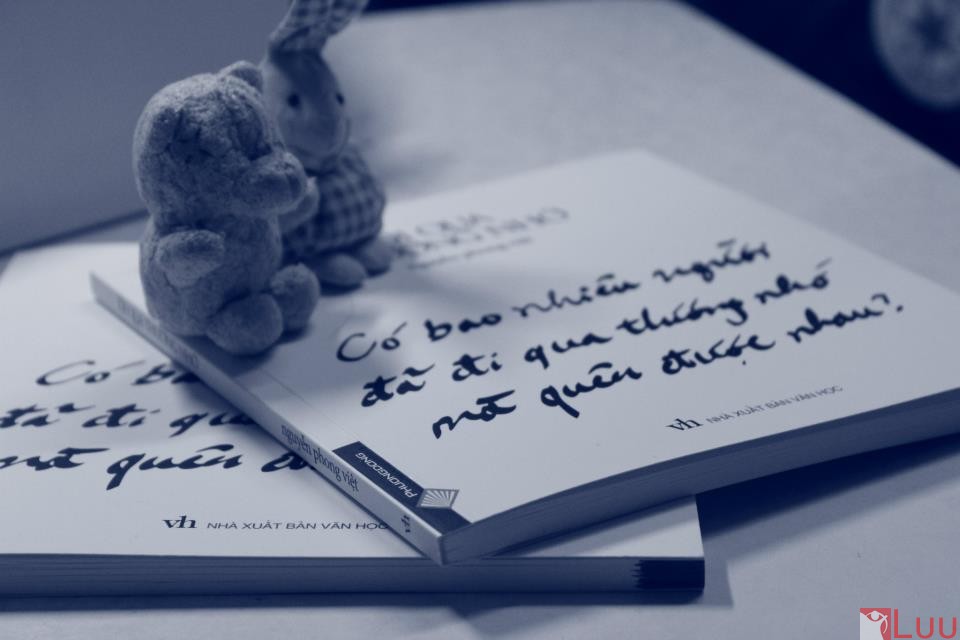 QUA
NHỚ
Có bao nhiêu người
đã đi qua thương nhớ
mà quên được nhau?
vh NHÀ XUẤT BẢN VĂN HỌC
nguyễn phong việt
PHUONGDONG
vh
Có ba
đã đi qu
mà quên đ
vh NHÀ XUẤT BẢN VĂN HỌC
Luu